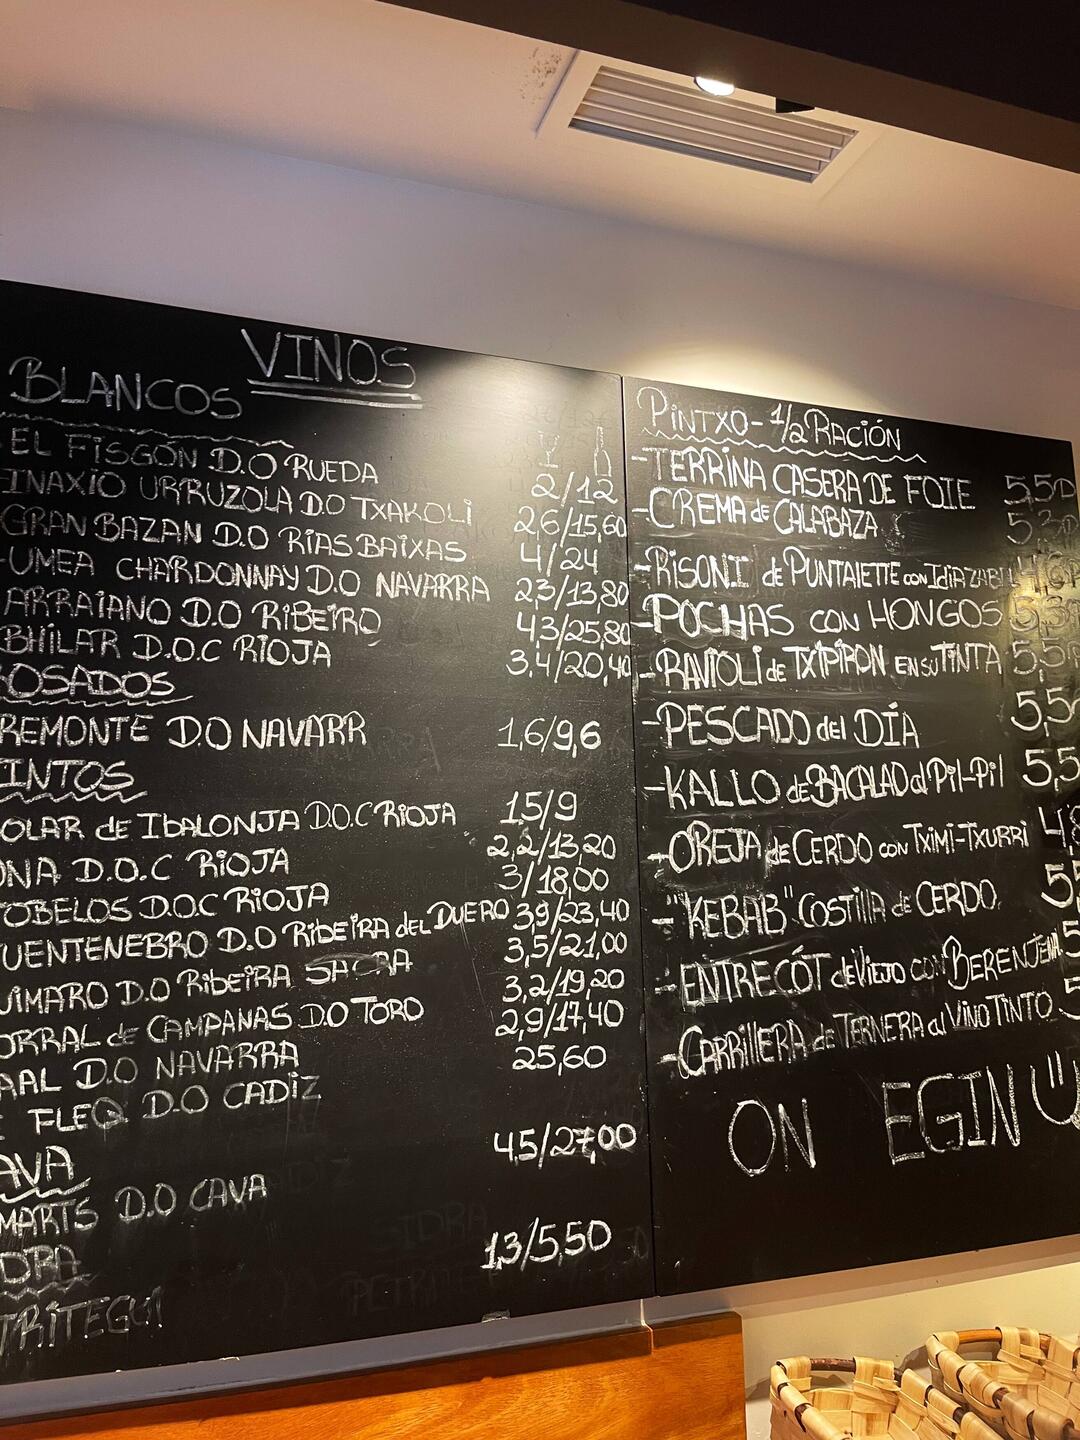 VINOS
BLANCOS
EL FISGÓN D.O RUEDA 2/12
INAXIO URRUZOLA D.O TXAKOLI 2,6/15,60
GRAN BAZAN D.O RIAS BAIXAS 4/24
UMEA CHARDONNAY D.O NAVARRA 2,3/13,80
ARRAIANO D.O RIBEIRO 4,3/25,80
BHILAR D.O.C RIOJA 3,4/20,40
ROSADOS
REMONTE D.O NAVARR 1,6/9,6
INTOS
OLAR de IBALONJA D.O.C RIOJA 1,5/9
ONA D.O.C RIOJA 2,2/13,20
TOBELOS D.O.C RIOJA 3/18,00
UENTENEBRO D.O RIBEIRA del DUERO 3,9/23,40
UIMARO D.O RIBEIRA SACRA 3,5/21,00
ORRAL de CAMPANAS D.O TORO 3,2/19,20
AAL D.O NAVARRA 2,9/17,40
FLEQ D.O CADIZ 25,60
AVA
MARTS D.O CAVA 4,5/27,00
DRA
TRITEGUI 1,3/5,50
PINTXO-1/2 RACIÓN
-TERRINA CASERA DE FOIE 5,50
-CREMA de CALABAZA 5,30
-RISONI de PUNTALETTE con IDIAZABL
-POCHAS CON HONGOS 5,3
-RAVIOLI de TXIPIRON EN SU TINTA 5,5
-PESCADO del DÍA 5,5
-KALLO de BACALAO al PIL-PIL 5,5
-OREJA de CERDO con TXIMI-TXURRI 4,8
-"KEBAB" COSTILLA de CERDO 5,5
-ENTRECÓT de VIEJO con BERENJENA 5
-CARRILLERA de TERNERA al VINO TINTO 5
ON EGIN